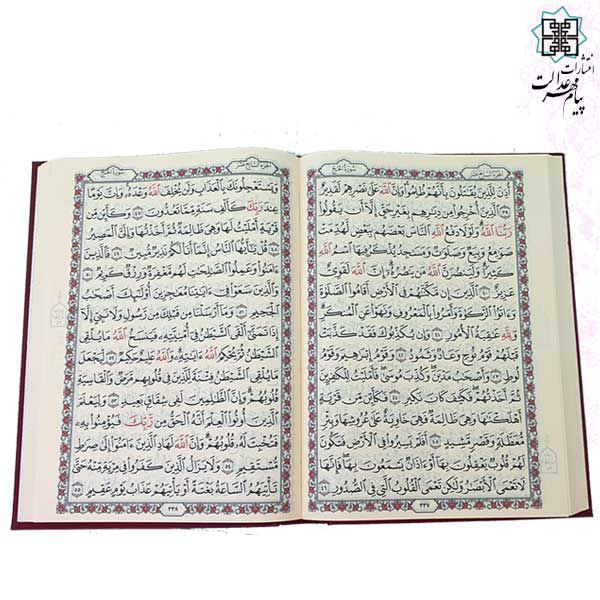 انتشارات
پیام مهر عدالت
الجزء السابع عشر سورة الحج
أُذِنَ لِلَّذِينَ يُقَٰتَلُونَ بِأَنَّهُمْ ظُلِمُوا۟ وَإِنَّ ٱللَّهَ عَلَىٰ نَصْرِهِمْ لَقَدِيرٌ
٣٩ ٱلَّذِينَ أُخْرِجُوا۟ مِن دِيَٰرِهِم بِغَيْرِ حَقٍّ إِلَّآ أَن يَقُولُوا۟
رَبُّنَا ٱللَّهُ وَلَوْلَا دَفْعُ ٱللَّهِ ٱلنَّاسَ بَعْضَهُم بِبَعْضٍ لَّهُدِّمَتْ
صَوَٰمِعُ وَبِيَعٌ وَصَلَوَٰتٌ وَمَسَٰجِدُ يُذْكَرُ فِيهَا ٱسْمُ ٱللَّهِ
كَثِيرًا وَلَيَنصُرَنَّ ٱللَّهُ مَن يَنصُرُهُۥٓ إِنَّ ٱللَّهَ لَقَوِىٌّ
عَزِيزٌ ٤٠ ٱلَّذِينَ إِن مَّكَّنَّٰهُمْ فِى ٱلْأَرْضِ أَقَامُوا۟ ٱلصَّلَوٰةَ
وَءَاتَوُا۟ ٱلزَّكَوٰةَ وَأَمَرُوا۟ بِٱلْمَعْرُوفِ وَنَهَوْا۟ عَنِ ٱلْمُنكَرِ
وَلِلَّهِ عَٰقِبَةُ ٱلْأُمُورِ ٤١ وَإِن يُكَذِّبُوكَ فَقَدْ كَذَّبَتْ
قَبْلَهُمْ قَوْمُ نُوحٍ وَعَادٌ وَثَمُودُ ٤٢ وَقَوْمُ إِبْرَٰهِيمَ وَقَوْمُ
لُوطٍ ٤٣ وَأَصْحَٰبُ مَدْيَنَ وَكُذِّبَ مُوسَىٰ فَأَمْلَيْتُ لِلْكَٰفِرِينَ
ثُمَّ أَخَذْتُهُمْ فَكَيْفَ كَانَ نَكِيرِ ٤٤ فَكَأَيِّن مِّن قَرْيَةٍ
أَهْلَكْنَٰهَا وَهِىَ ظَالِمَةٌ فَهِىَ خَاوِيَةٌ عَلَىٰ عُرُوشِهَا وَبِئْرٍ
مُّعَطَّلَةٍ وَقَصْرٍ مَّشِيدٍ ٤٥ أَفَلَمْ يَسِيرُوا۟ فِى ٱلْأَرْضِ فَتَكُونَ
لَهُمْ قُلُوبٌ يَعْقِلُونَ بِهَآ أَوْ ءَاذَانٌ يَسْمَعُونَ بِهَا فَإِنَّهَا
لَا تَعْمَى ٱلْأَبْصَٰرُ وَلَٰكِن تَعْمَى ٱلْقُلُوبُ ٱلَّتِى فِى ٱلصُّدُورِ ٤٦
٣٣٧
الجزء السابع عشر سورة الحج
وَيَسْتَعْجِلُونَكَ بِٱلْعَذَابِ وَلَن يُخْلِفَ ٱللَّهُ وَعْدَهُۥ وَإِنَّ يَوْمًا
عِندَ رَبِّكَ كَأَلْفِ سَنَةٍ مِّمَّا تَعُدُّونَ ٤٧ وَكَأَيِّن مِّن
قَرْيَةٍ أَمْلَيْتُ لَهَا وَهِىَ ظَالِمَةٌ ثُمَّ أَخَذْتُهَا وَإِلَىَّ ٱلْمَصِيرُ
٤٨ قُلْ يَٰٓأَيُّهَا ٱلنَّاسُ إِنَّمَآ أَنَا۠ لَكُمْ نَذِيرٌ مُّبِينٌ ٤٩ فَٱلَّذِينَ
ءَامَنُوا۟ وَعَمِلُوا۟ ٱلصَّٰلِحَٰتِ لَهُم مَّغْفِرَةٌ وَرِزْقٌ كَرِيمٌ ٥٠
وَٱلَّذِينَ سَعَوْا۟ فِىٓ ءَايَٰتِنَا مُعَٰجِزِينَ أُو۟لَٰٓئِكَ أَصْحَٰبُ
ٱلْجَحِيمِ ٥١ وَمَآ أَرْسَلْنَا مِن قَبْلِكَ مِن رَّسُولٍ وَلَا نَبِىٍّ إِلَّآ
إِذَا تَمَنَّىٰٓ أَلْقَى ٱلشَّيْطَٰنُ فِىٓ أُمْنِيَّتِهِۦ فَيَنسَخُ ٱللَّهُ مَا يُلْقِى
ٱلشَّيْطَٰنُ ثُمَّ يُحْكِمُ ٱللَّهُ ءَايَٰتِهِۦ وَٱللَّهُ عَلِيمٌ حَكِيمٌ ٥٢ لِّيَجْعَلَ
مَا يُلْقِى ٱلشَّيْطَٰنُ فِتْنَةً لِّلَّذِينَ فِى قُلُوبِهِم مَّرَضٌ وَٱلْقَاسِيَةِ
قُلُوبُهُمْ وَإِنَّ ٱلظَّٰلِمِينَ لَفِى شِقَاقٍۭ بَعِيدٍ ٥٣ وَلِيَعْلَمَ
ٱلَّذِينَ أُوتُوا۟ ٱلْعِلْمَ أَنَّهُ ٱلْحَقُّ مِن رَّبِّكَ فَيُؤْمِنُوا۟ بِهِۦ
فَتُخْبِتَ لَهُۥ قُلُوبُهُمْ وَإِنَّ ٱللَّهَ لَهَادِ ٱلَّذِينَ ءَامَنُوٓا۟ إِلَىٰ صِرَٰطٍ
مُّسْتَقِيمٍ ٥٤ وَلَا يَزَالُ ٱلَّذِينَ كَفَرُوا۟ فِى مِرْيَةٍ مِّنْهُ حَتَّىٰ
تَأْتِيَهُمُ ٱلسَّاعَةُ بَغْتَةً أَوْ يَأْتِيَهُمْ عَذَابُ يَوْمٍ عَقِيمٍ ٥٥
٣٣٨